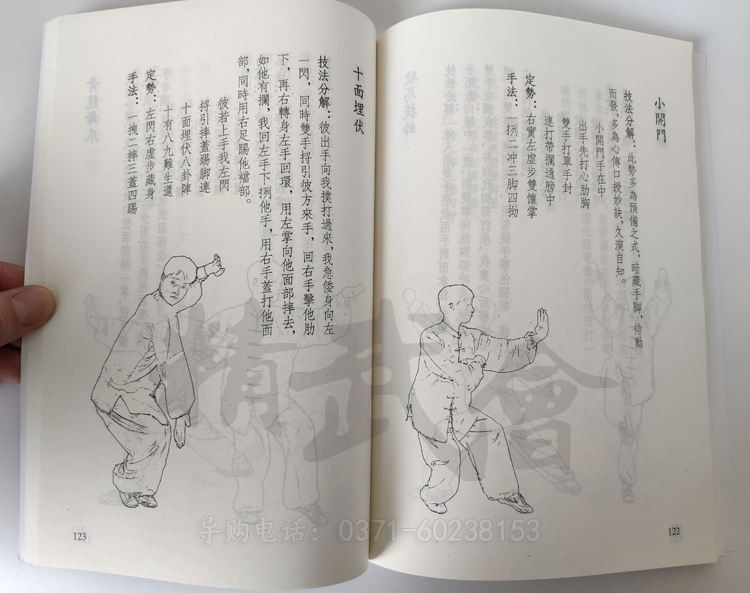 小開門
技法分解：此勢多為預備之式，暗藏手脚，待動
而發，多為心傳口授妙訣，久演自知。
小開門手在中
出手先打心肋胸
雙手打單手封
連打帶攔通膀中
定勢：右實左虛步雙懷掌
手法：一捌二冲三脚四拗
122
十面埋伏
技法分解：彼出手向我撲打過來，我急倭身向左
一閃，同時雙手捋引彼方來手，回右手擊他肋
下，再右轉身左手回環，用左掌向他面部摔去，
如他有攔，我回左手下捌他手，用右手蓋打他面
部，同時用右足踢他襠部。
彼若上手我左閃
捋引摔蓋踢脚連
十面埋伏八卦陣
十有八九難生還
定勢：左閃右虛步藏身
手法：一拽二摔三蓋四踢
123
精武會
导购电话：0371-60238153